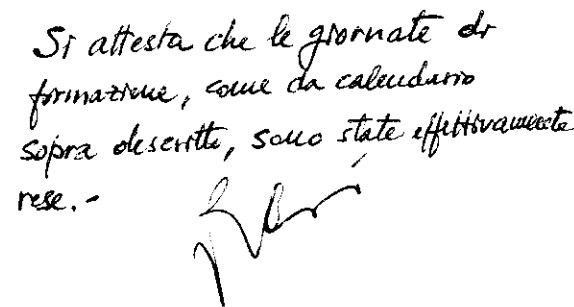 Si attesta che le giornate di
formazione, come da calendario
sopra descritto, sono state effettivamente
rese.-